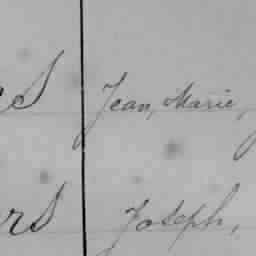 Jean, Marie,
Joseph,